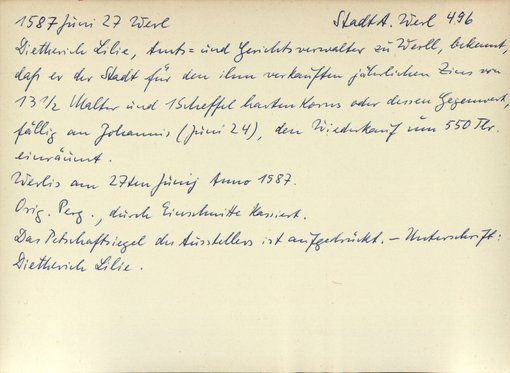 1587 Juni 27 Werl StadtA. Werl 496
Dietherich Lilie, Amts= und Gerichtsverwalter zu Werll, bekennt,
daß er der Stadt für den ihm verkauften jährlichen Zins von
13 1/2 Malter und 1 Scheffel harten Korns oder dessen Gegenwert,
fällig an Johannis (Juni 24), den Wiederkauf um 550 Tlr.
einräumt.
Werlis am 27ten Junij Anno 1587.
Orig. Perg., durch Einschnitte kassiert.
Das Petschaftsiegel des Ausstellers ist aufgedrückt. – Unterschrift:
Dietherich Lilie.